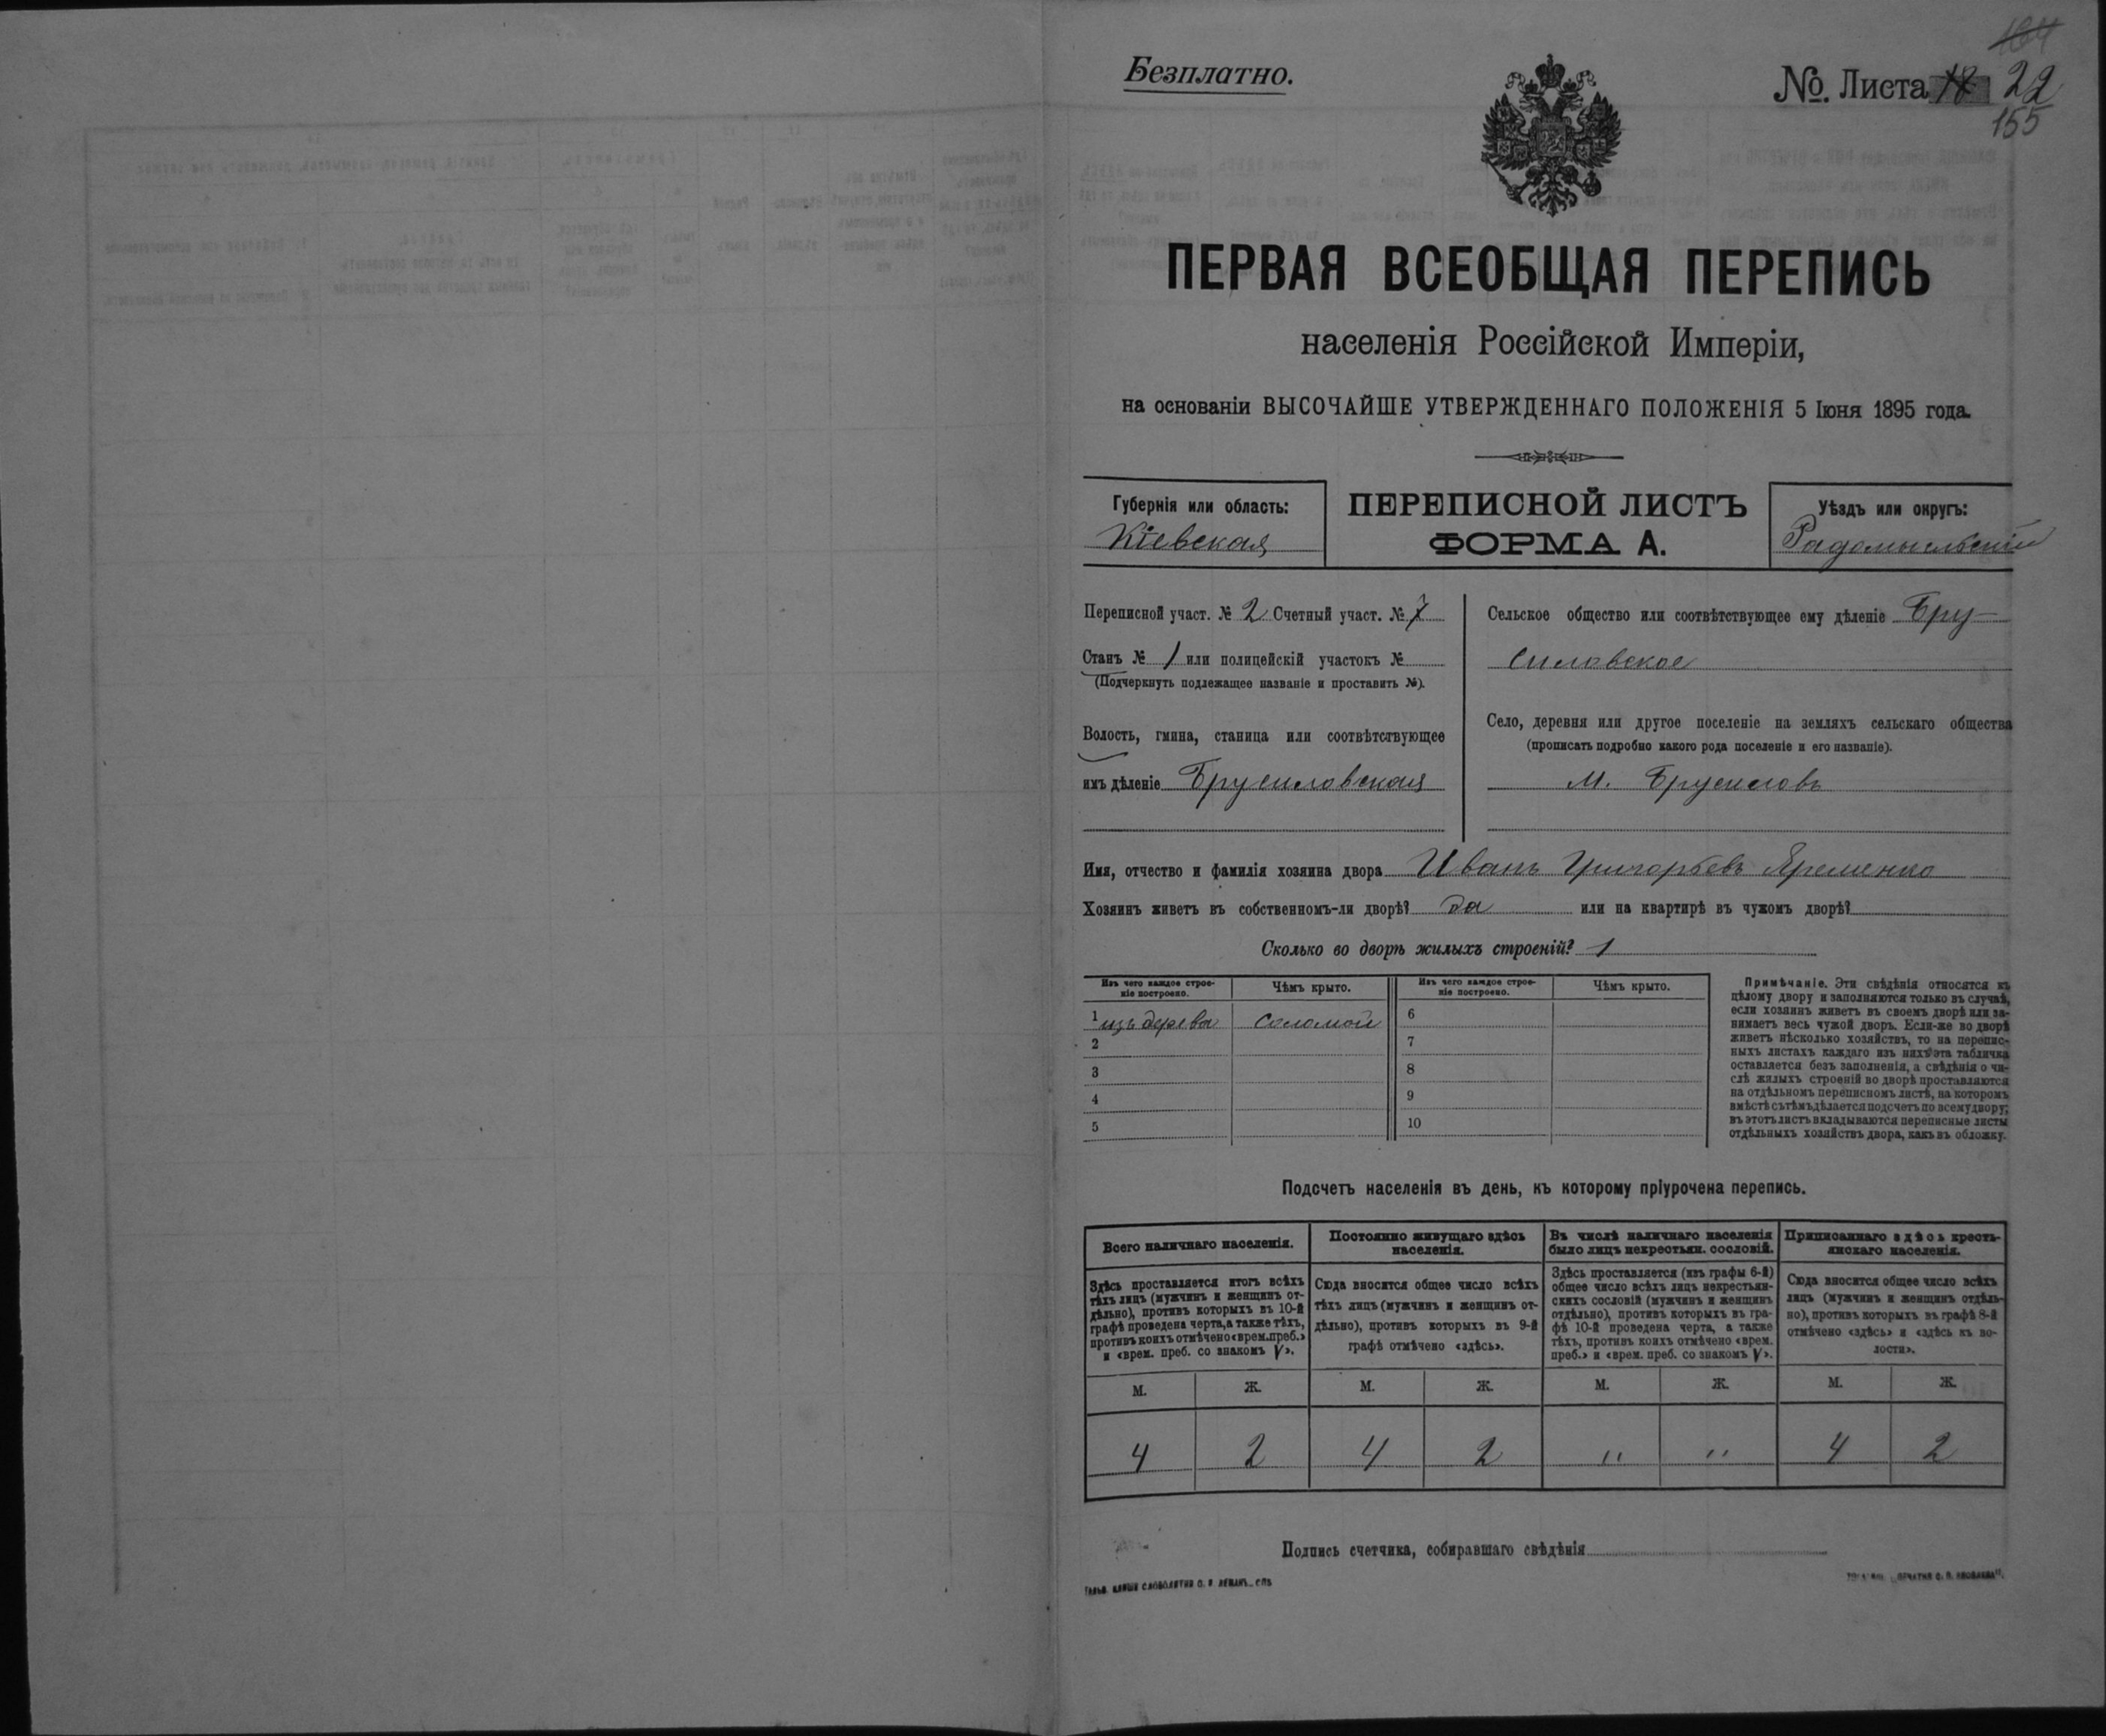 164
Безплатно.
№. Листа 18 22
155
ПЕРВАЯ ВСЕОБЩАЯ ПЕРЕПИСЬ
населенія Россійской Имперіи,
на основаніи ВЫСОЧАЙШЕ УТВЕРЖДЕННАГО ПОЛОЖЕНІЯ 5 Іюня 1895 года.
Губернія или область:
Кіевская
ПЕРЕПИСНОЙ ЛИСТЪ
ФОРМА А.
Уѣздъ или округъ:
Радомысльскій
Переписной участ. № 2 Счетный участ. № 7
Станъ № 1 или полицейскій участокъ №
(Подчеркнуть подлежащее названіе и проставить №).
Волость, гмина, станица или соотвѣтствующее
имъ дѣленіе Брусиловская
Сельское общество или соотвѣтствующее ему дѣленіе Бру-
силовское
Село, деревня или другое поселеніе на земляхъ сельскаго общества
(прописать подробно какого рода поселеніе и его названіе).
М. Брусиловъ
Имя, отчество и фамилія хозяина двора Иванъ Григорьевъ Яременко
Хозяинъ живетъ въ собственномъ-ли дворѣ? да или на квартирѣ въ чужомъ дворѣ?
Сколько во дворѣ жилыхъ строеній? 1
Изъ чего каждое строе-
ніе построено.
Чѣмъ крыто.
Изъ чего каждое строе-
ніе построено.
Чѣмъ крыто.
1 изъ дерева соломой 6
2 7
3 8
4 9
5 10
Примѣчаніе. Эти свѣдѣнія относятся къ
цѣлому двору и заполняются только въ случаѣ,
если хозяинъ живетъ въ своемъ дворѣ или за-
нимаетъ весь чужой дворъ. Если-же во дворѣ
живетъ нѣсколько хозяйствъ, то на перепис-
ныхъ листахъ каждаго изъ нихъ эта табличка
оставляется безъ заполненія, а свѣдѣнія о чи-
слѣ жилыхъ строеній во дворѣ проставляются
на отдѣльномъ переписномъ листѣ, на которомъ
вмѣстѣ съ тѣмъ дѣлается подсчетъ по всему двору;
въ этотъ листъ вкладываются переписные листы
отдѣльныхъ хозяйствъ двора, какъ въ обложку.
Подсчетъ населенія въ день, къ которому пріурочена перепись.
Всего наличнаго населенія.
Постоянно живущаго здѣсь
населенія.
Въ числѣ наличнаго населенія
было лицъ некрестьян. сословій.
Приписаннаго здѣсь кресть-
янскаго населенія.
Здѣсь проставляется итогъ всѣхъ
тѣхъ лицъ (мужчинъ и женщинъ от-
дѣльно), противъ которыхъ въ 10-й
графѣ проведена черта, а также тѣхъ,
противъ коихъ отмѣчено «врем. преб.»
и «врем. преб. со знакомъ V».
Сюда вносится общее число всѣхъ
тѣхъ лицъ (мужчинъ и женщинъ от-
дѣльно), противъ которыхъ въ 9-й
графѣ отмѣчено «здѣсь».
Здѣсь проставляется (изъ графы 6-й)
общее число всѣхъ лицъ некрестьян-
скихъ сословій (мужчинъ и женщинъ
отдѣльно), противъ которыхъ въ гра-
фѣ 10-й проведена черта, а также
тѣхъ, противъ коихъ отмѣчено «врем.
преб.» и «врем. преб. со знакомъ V».
Сюда вносится общее число всѣхъ
лицъ (мужчинъ и женщинъ отдѣль-
но), противъ которыхъ въ графѣ 8-й
отмѣчено «здѣсь» и «здѣсь къ во-
лости».
М. Ж. М. Ж. М. Ж. М. Ж.
4 2 4 2 " " 4 2
Подпись счетчика, собиравшаго свѣдѣнія
СЛОВОЛИТНЯ О. И. ЛЕМАНЪ, СПБ